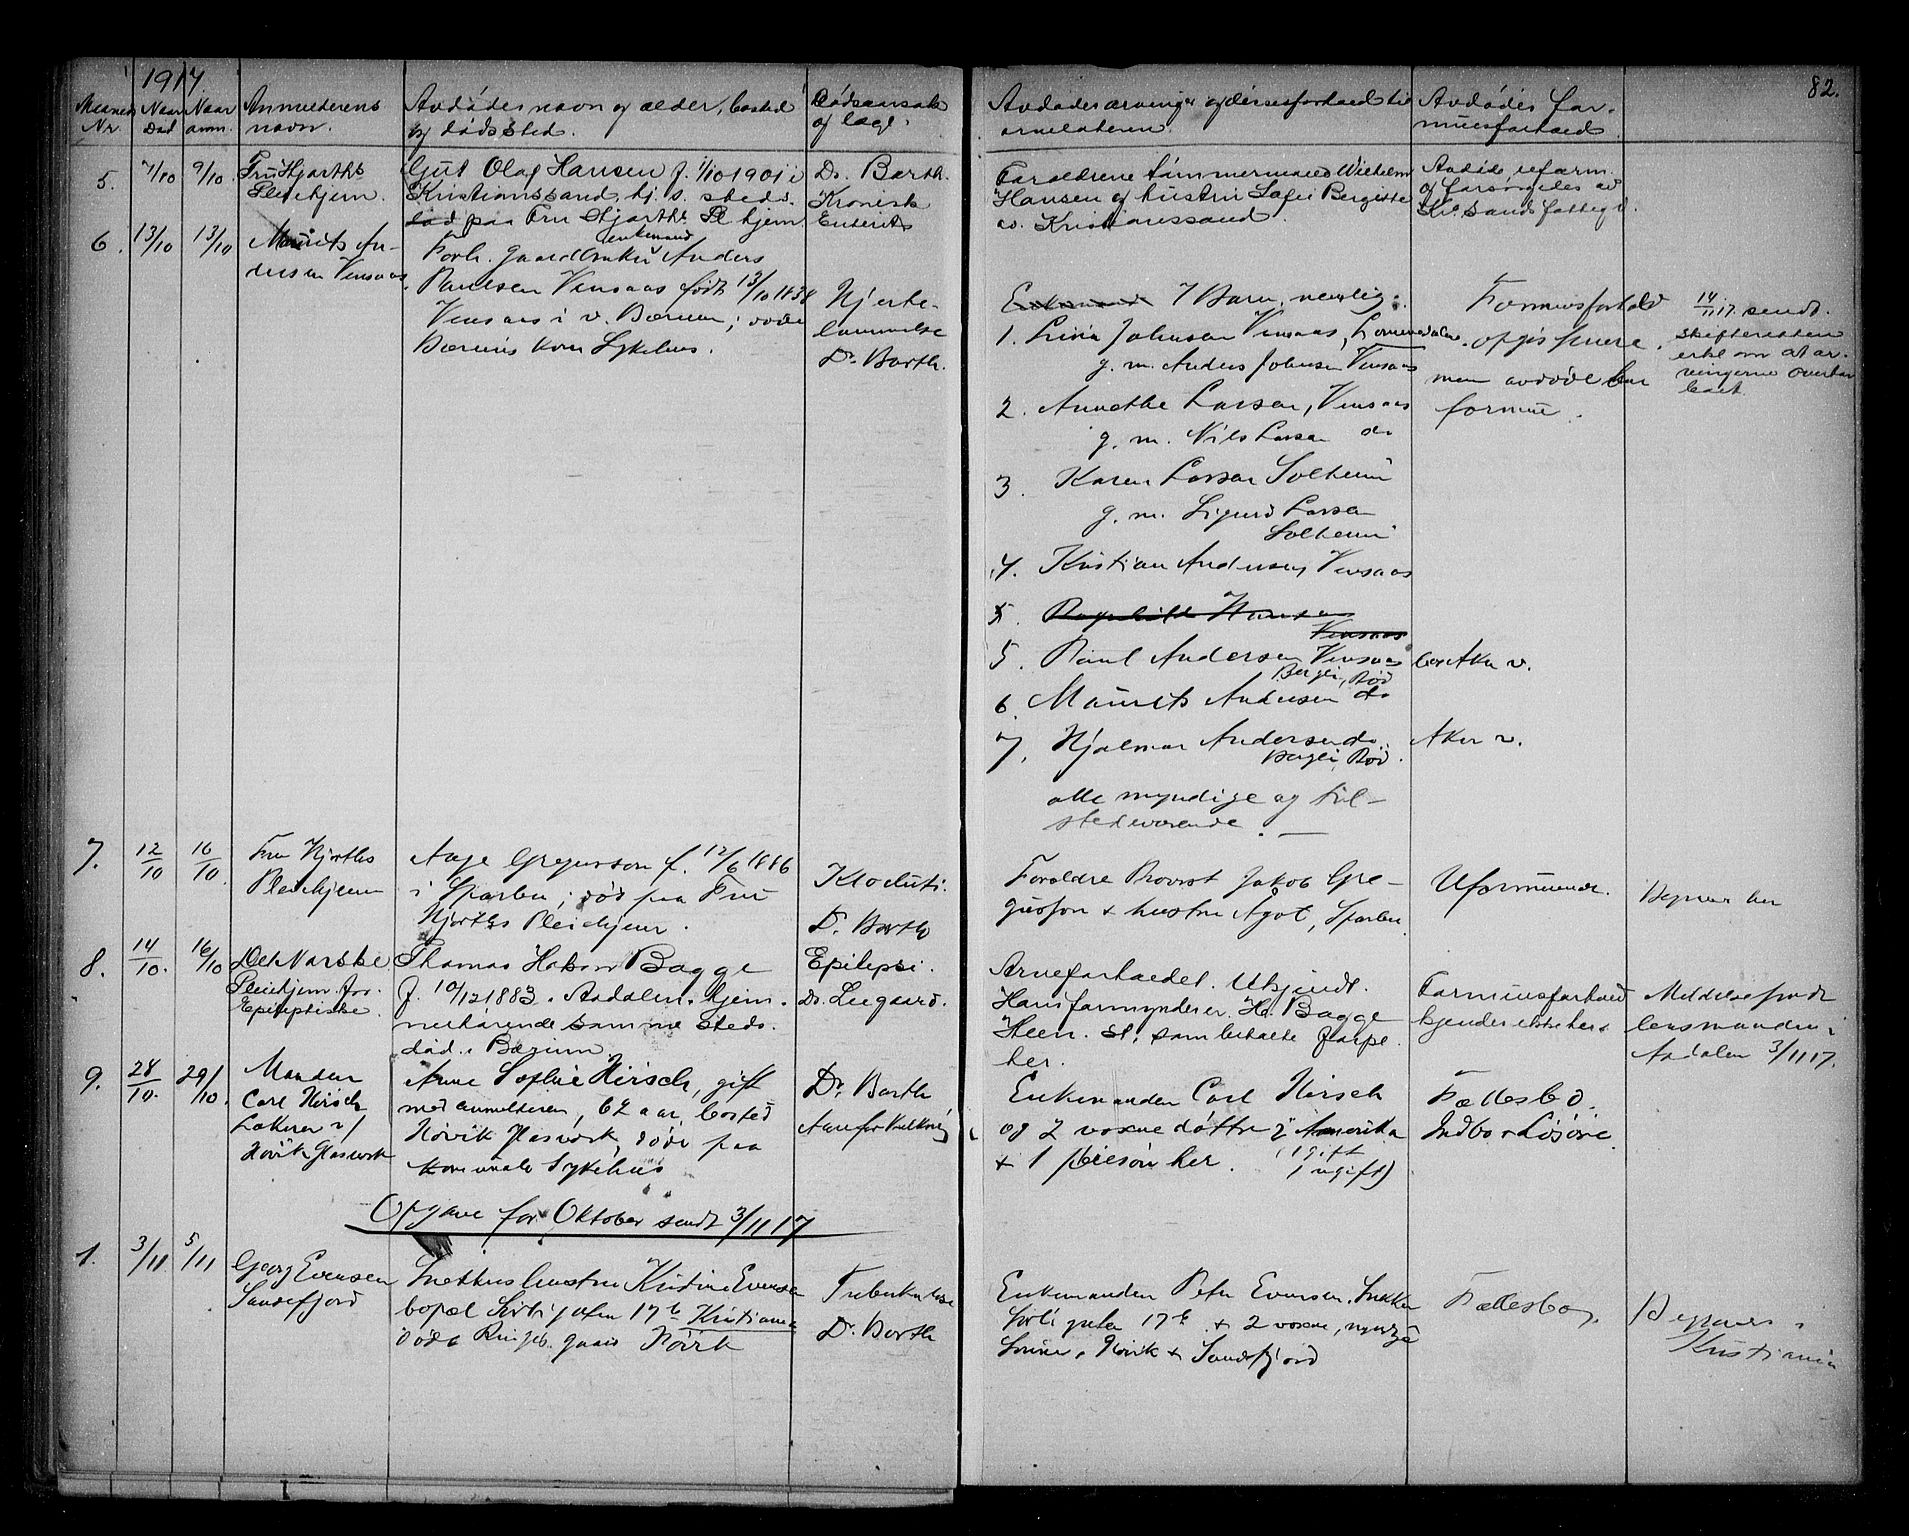 1917.
82.
Maaned Nr.
Naar Død
Naar anm.
Anmelderens navn.
Avdødes navn og alder, bosted
og dødssted.
Dødsaarsak
og læge.
Avdødes arvinger og deres forhold til
arvelateren.
Avdødes for-
muesforhold
5.
7/10
9/10
Fru Hjorths
Pleiehjem.
Gut Olaf Hansen f. 1/10 1901 i
Kristianssand, hj. s. steds.
død paa Fru Hjorths Pl. hjem
Dr. Barth.
Kronisk
Enterit
Forældrene tømmermand Wilhelm
Hansen og hustru Sofie Bergitte
av Kristianssand
Avdøde uform.
og forsørgedes av
Kr.sands fattigv.
6.
13/10
13/10
Maurits An-
dersen Vensaas
Forh. gaardbruker enkemand Anders
Paulsen Vensaas født 13/10 1838
Vensaas i v. Bærum; døde
Bærums kom Sykehus.
Hjerte-
lammelse
Dr. Barth.
Enkemand 7 Barn, nemlig:
1. Lina Johnsen Vensaas, Lommedalen.
g. m. Anders Johnsen Vensaas
2. Annethe Larsen, Vensaas
g. m. Nils Larsen do
3. Karen Larsen Solheim
g. m. Sigurd Larsen
Solheim
4. Kristian Andersen, Vensaas
5. Ragnhild Hansen
Vensaas
5. Paul Andersen Vensaas bor Aker v.
Berger, Rød
6. Maurits Andersen do
7. Hjalmar Andersen do. Aker v.
Berger, Rød.
alle myndige og til-
stedeværende.
Formuesforhold
opgis senere.
men avdøde har
formue.
14/11 17. sendt
skifteretten
erkl om at ar-
vingerne overtar
boet.
7.
12/10
16/10
Fru Hjorths
Pleiehjem
Aage Gregusson f. 12/6 1886
i Sparbu; død paa Fru
Hjorths Pleiehjem.
Dr. Barth
Foreldre Provst Jakob Gre-
gusson + hustru Agot, Sparbu
Uformuende.
8.
14/10.
16/10
Det Norske
Pleiehjem for
Epileptiske.
Thomas Bagge
f. 10/12 1883. Aadalen. hjem-
mehørende samme steds.
død i Bærum
Epilepsi.
Dr. Lugaard.
Arveforholdet. Ukjendt.
Hans formynder er. H. Bagge
Heen. St. som betalte for pl.
her.
Formuesforhold
kjendes ikke her
Meddelse sendt
lensmanden i
Aadalen 3/11 17.
9.
28/10.
29/10.
Manden
Carl Hirsch
v/
Høvik Glasverk
Anne Sophie Hirsch, gift
med anmelderen, 62 aar, bosted
Høvik Glasverk, døde paa
komunale Sykehus
Dr. Barth
Aareforkalkning
Enkemanden Carl Hirsch
og 2 voxne døttre i Amerika
+ 1 her. (1 gift
1 ugift)
Fællesbo.
Indbo + Løsøre
Opgave for Oktober sendt 3/11 17
1.
3/11
5/11
Georg Evensen
Sandefjord
Snekkerhustru Kristine Evensen
bopæl gaten 17b Kristiania
døde Ringeb. gaard Høvik
Tuberkulose
Dr. Barth
Enkemanden Peter Evensen, Snekker
gaten 17b + 2 voxne, myndige
Sønner, Høvik + Sandefjord
Fællesbo.
Kristiania